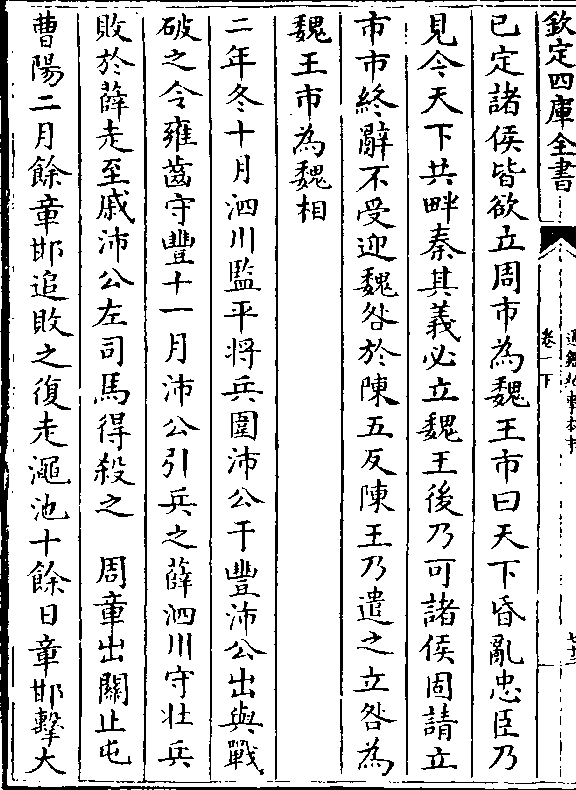 欽定四庫全書
卷一下
已定諸侯皆欲立周市為魏王市曰天下昏亂忠臣乃
見今天下共畔秦其義必立魏王後乃可諸侯固請立
市市終辭不受迎魏咎於陳五反陳王乃遣之立咎為
魏王市為魏相
二年冬十月泗川監平将兵圍沛公于豐沛公出與戰
破之令雍齒守豐十一月沛公引兵之薛泗川守壯兵
敗於薛走至戚沛公左司馬得殺之　周章出關止屯
曹陽二月餘章邯追敗之復走澠池十餘日章邯擊大